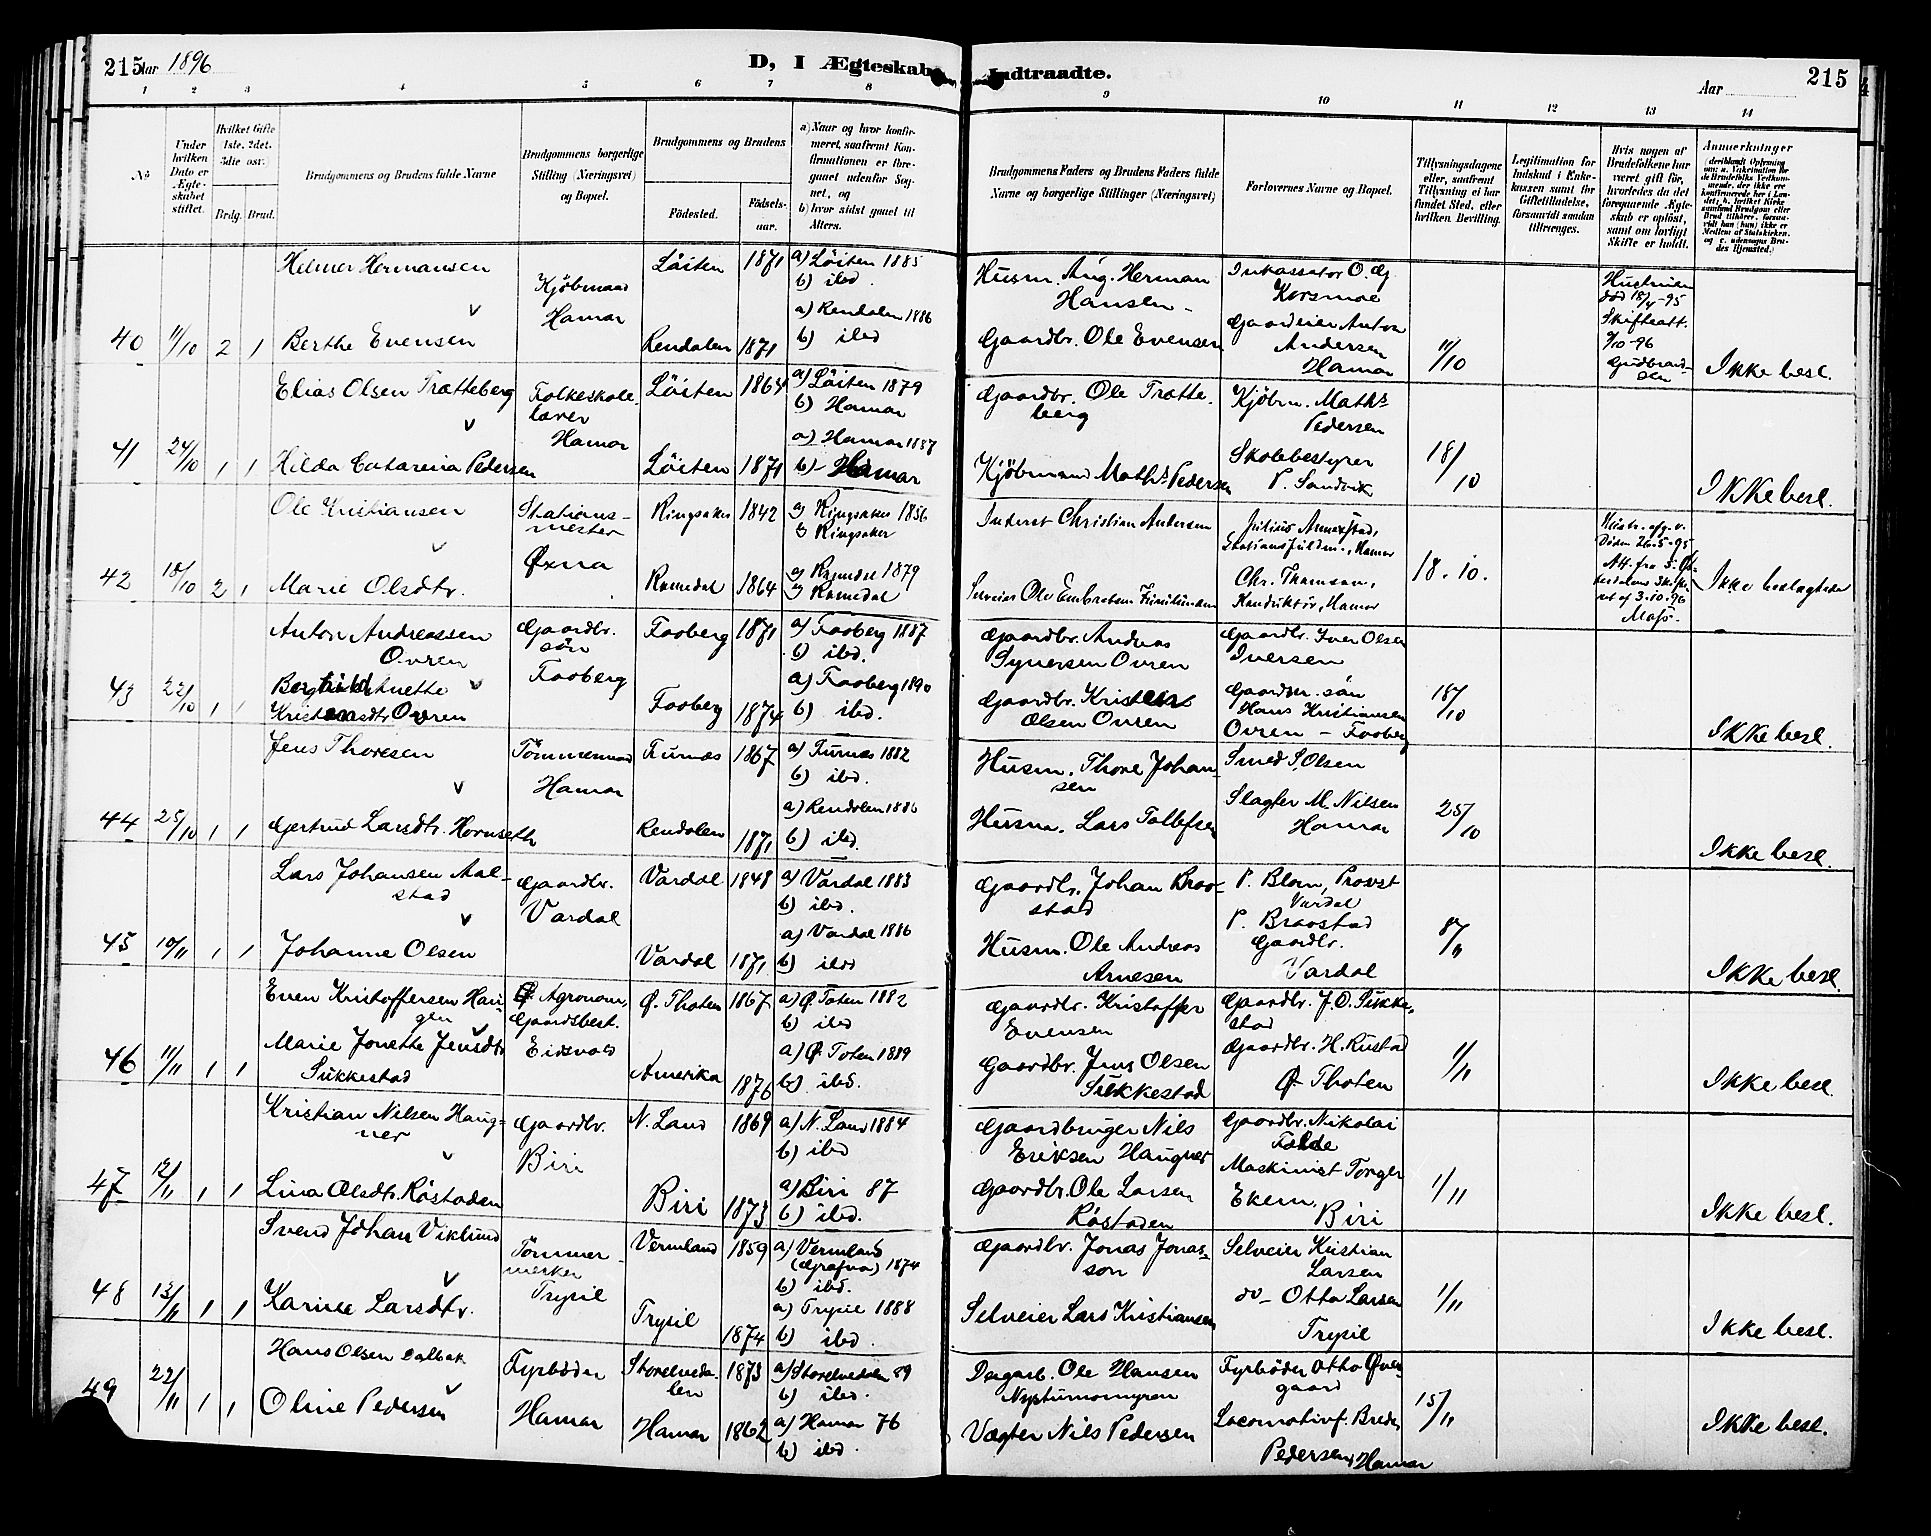 215 Aar 1896
D, I Ægteskab Indtraadte.
Aar 215
1 2 3 4 5 6 7 8 9 10 11 12 13 14
No
Under hvilken Dato er Ægteskabet stiftet.
Hvilket Gifte 1ste, 2det. 3die osv.)
Brdg. Brud.
Brudgommens og Brudens fulde Navne
Brudgommens borgerlige Stilling (Næringsvei) og Bopæl.
Brudgommens og Brudens
Fødested. Fødselsaar.
a) Naar og hvor konfirmeret, saafremt Konfirmationen er foregaaet udenfor Sognet, og
b) hvor sidst gaaet til Alters.
Brudgommens Faders og Brudens Faders fulde Navne og borgerlige Stillinger (Næringsvei)
Forlovernes Navne og Bopæl.
Tillysningsdagene eller, saafremt Tillysning ei har fundet Sted, efter hvilken Bevilling.
Legitimation for Indskud i Enkekassen samt for Giftetilladelse, forsaavidt saadan tiltrænges.
Hvis nogen af Brudefolkene har været gift før, hvorledes da det foregaaende Ægteskab er opløst, samt om lovligt Skifte er holdt.
Anmerkninger
40 11/10 2 1
Helmer Hermansen
Berthe Evensen
Kjøbmand
Hamar
Löiten 1871
Rendalen 1871
a) Löiten 1885
b) ibd.
a) Rendalen 1886
b) ibd
Husm. Aug. Herman
Hansen
Gaardbr. Ole Evensen
Inkassator O. G.
Korsmoe
Gaardeier Anton
Andersen
Hamar
11/10
Hustruen
død 18/4-95
Skifteatt.
9/10-96
Gudbrandsen
Ikke besl.
41 24/10 1 1
Elias Olsen Trætteberg
Hilda Catarina Pedersen
Folkeskolelærer
Hamar
Löiten 1864
Löiten 1871
a) Löiten 1879
b) Hamar
a) Hamar 1887
b) Hamar
Gaardbr. Ole Trætteberg
Kjöbmand Maths Pedersen
Kjöbm. Maths
Pedersen
Skolebestyrer
P. Sandvik
18/10
Ikke besl.
42 18/10 2 1
Ole Kristiansen
Marie Olsdtr.
Stationsmester
Øxna
Ringsaker 1842
Romedal 1864
a) Ringsaker 1856
b) Ringsaker
a) Romedal 1879
b) Romedal
Inderst Christian Andersen
Selveier Ole Embretsen
Julius Annexstad,
Stationsfuldm., Hamar
Chr. Thomsen,
Konduktør, Hamar
18.10.
Hustr. afg. v.
Døden 26-5-95
Att. fra S. Østerdalens Skifteret af 3-10-96
Ikke beslægtede
43 22/10 1 1
Anton Andreassen
Ovren
Berghild Anette
Kristensdtr. Ovren
Gaardbr.
sön
Faaberg
Faaberg 1871
Faaberg 1874
a) Faaberg 1887
b) ibd.
a) Faaberg 1890
b) ibd.
Gaardbr. Andreas
Syversen Ovren
Gaardbr. Kristen
Olsen Ovren
Gaardbr. Iver Olsen
Iversen
Gaardbr. sön
Hans Kristiansen
Ovren - Faaberg
18/10
Ikke besl.
44 25/10 1 1
Jens Thoresen
Gertrud Larsdtr. Hornseth
Tömmermand
Hamar
Furnæs 1867
Rendalen 1871
a) Furnæs 1882
b) ibd.
a) Rendalen 1886
b) ibd.
Husm. Thore Johansen
Husm. Lars Tollefsen
Smed S. Olsen
Slagter M. Nilsen
Hamar
25/10
Ikke besl.
45 10/11 1 1
Lars Johansen Aalstad
Johanne Olsen
Gaardbr.
Vardal
Vardal 1848
Vardal 1871
a) Vardal 1883
b) ibd.
a) Vardal 1886
b) ibd
Gaardbr. Johan Braastad
Husm. Ole Andreas
Arnesen
P. Blom, Provst
Vardal
P. Braastad
Gaardbr.
Vardal
8/11
Ikke besl.
46 11/11 1 1
Even Kristoffersen Haugen
Marie Jonette Jensdtr.
Sukkestad
Agronom,
Gaardsbest.
Eidsvold
Ø. Thoten 1867
Amerika 1876
a) Ø. Toten 1882
b) ibd
a) Ø. Toten 1889
b) ibd.
Gaardbr. Kristoffer
Evensen
Gaardbr. Jens Olsen
Sukkestad
Gaardbr. J. O. Sukkestad
Gaardbr. H. Rustad
Ø. Thoten
1/11
Ikke besl.
47 12/11 1 1
Kristian Nilsen Haugner
Lina Olsdtr. Röstaden
Gaardbr.
Biri
N. Land 1869
Biri 1873
a) N. Land 1884
b) ibd
a) Biri 87
b) ibd.
Gaardbruger Nils
Eriksen Haugner
Gaardbr. Ole Larsen
Röstaden
Gaardbr. Nikolai
Falde
Maskinist Torger
Ekern,
Biri
1/11
Ikke besl.
48 13/11 1 1
Svend Johan Viklund
Karine Larsdtr.
Tömmermerker
Trysil
Vermland 1859
Trysil 1874
a) Vermland
(Grafva) 1874
b) ibd.
a) Trysil 1888
b) ibd.
Gaardbr. Jonas Jonasson
Selveier Lars Kristiansen
Selveier Kristian
Larsen
do- Otto Larsen
Trysil
1/11
Ikke besl.
49 22/11 1 1
Hans Olsen Dalbak
Oline Pedersen
Fyrbøder
Hamar
Storelvedalen 1873
Hamar 1862
a) Storelvedalen 89
b) ibd.
a) Hamar 76
b) ibd.
Dagarb. Ole Hansen
Neptunomyren
Vægter Nils Pedersen
Fyrbøder Otto Øvergaard
Locomotivf. Brede
Pedersen, Hamar
15/11
Ikke besl.